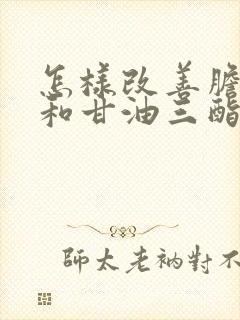 怎樣改善膽
和甘油三酯
師太老衲對不